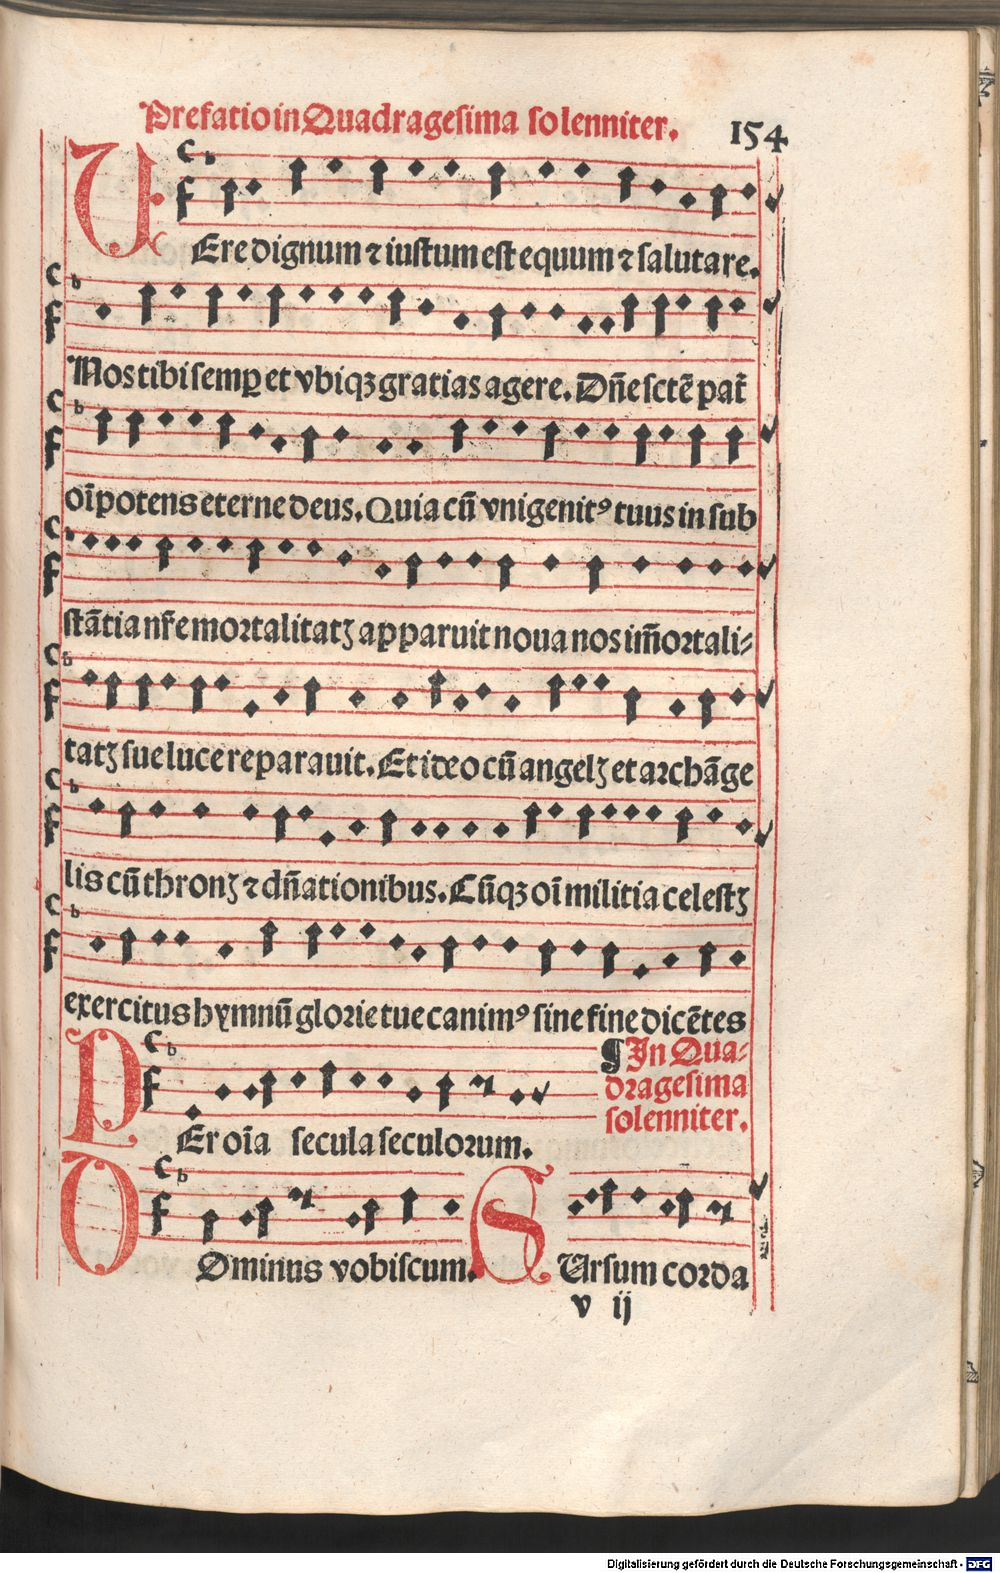 Prefatio in Quadragesima solenniter.
154
VEre dignum ⁊ iustum est equum ⁊ salutare.
Nos tibi semꝑ et vbiqꝫ gratias agere. Dn̄e sctē pat̄
oīpotens eterne deus. Quia cū vnigenitꝰ tuus in sub
stātia nr̄e mortalitatꝫ apparuit noua nos im̄ortali⸗
tatꝫ sue luce reparauit. Et ideo cū angelꝫ et archāge
lis cū thronꝫ ⁊ dn̄ationibus. Cūqꝫ oī militia celestꝫ
exercitus hymnū glorie tue canimꝰ sine fine dicētes
¶ In Qua⸗
dragesima
solenniter.
PEr oīa secula seculorum.
DOminus vobiscum. SUrsum corda
v ij
Digitalisierung gefördert durch die Deutsche Forschungsgemeinschaft - DFG